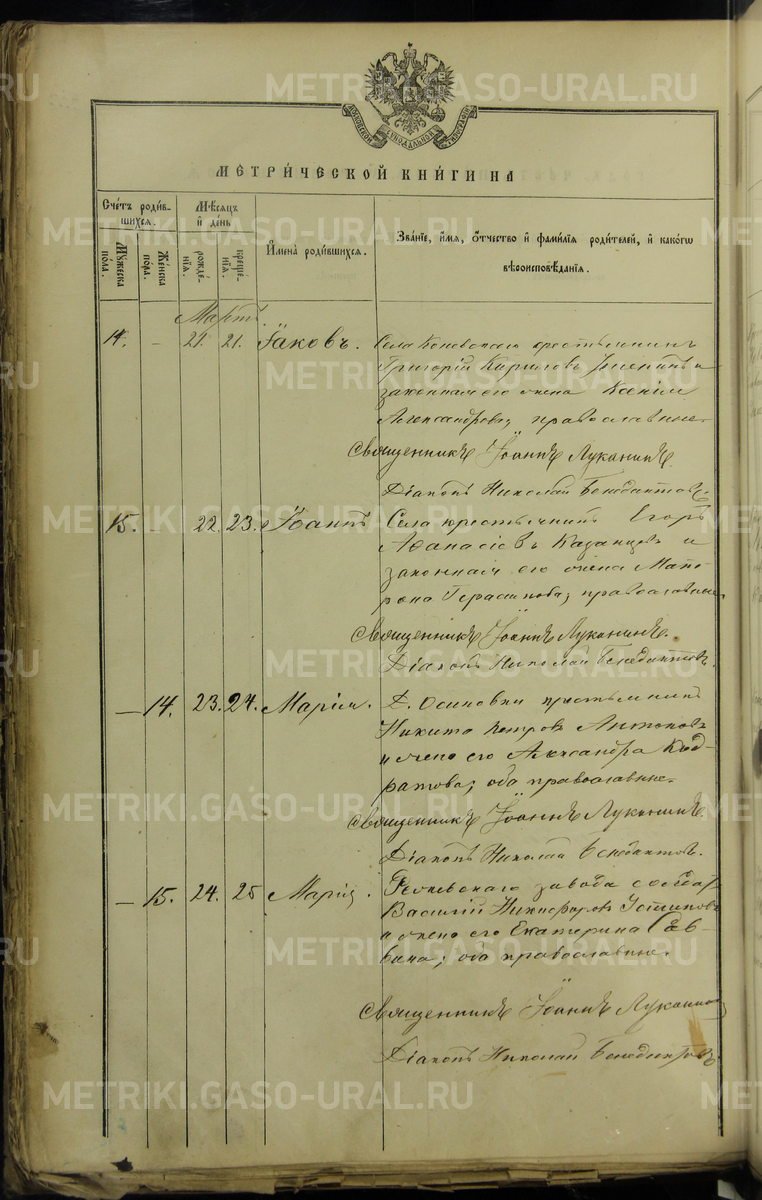 METRIKI.GASO-URAL.RU
МОСКОВСКОЙ СѴНОДАЛЬНОЙ ТИПОГРАФІИ
МЕТРИ́ЧЕСКОЙ КНИ́ГИ НА
Сче́тъ роди́в-
шихся.
Мꙋ́жеска
по́ла.
Же́нска
по́ла.
Мѣ́сяцъ
и҆ де́нь
рожде́-
нїѧ.
креще́-
нїѧ.
И҆мена̀ роди́вшихся.
Зва́нїе, и҆́мѧ, ѻ҆́тчество и҆ фами́лїѧ роди́телей, и҆ како́гѡ
вѣроисповѣ́данїѧ.
Мартъ
14. - 21. 21. Іаковъ. Села Коневскаго крестьянинъ
Григорій Кириловъ и
законная его жена Ксенія
Александрова, православные.
Священникъ Іоаннъ Луканинъ.
Діаконъ Николай Бенедиктовъ.
15. - 22. 23. Іоаннъ Села крестьянинъ Егоръ
Аѳанасіевъ Казанцевъ и
законная его жена Мат-
рона Герасимова, православные.
Священникъ Іоаннъ Луканинъ.
Діаконъ Николай Бенедиктовъ.
- 14. 23. 24. Марія. Д. Осиновки крестьянинъ
Никита Петровъ Антоновъ
и жена его Александра Код-
ратова, оба православные.
Священникъ Іоаннъ Луканинъ.
Діаконъ Николай Бенедиктовъ.
- 15. 24. 25 Марія. завода солдатъ
Василій Никифоровъ Устиновъ
и жена его Екатерина Сав-
вина, оба православные.
Священникъ Іоаннъ Луканинъ
Діаконъ Николай Бенедиктовъ